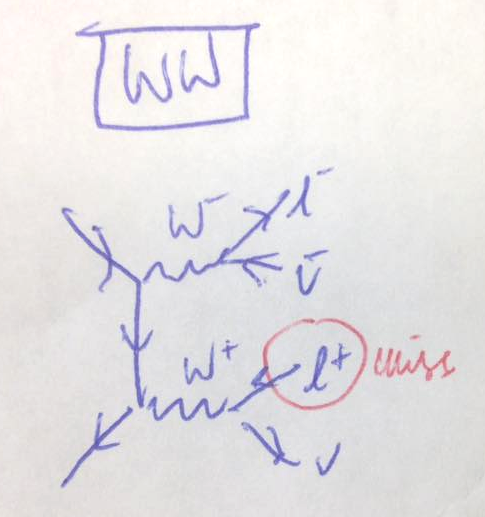 WW
W⁻ l⁻
ν̄
W⁺ l⁺ miss
ν